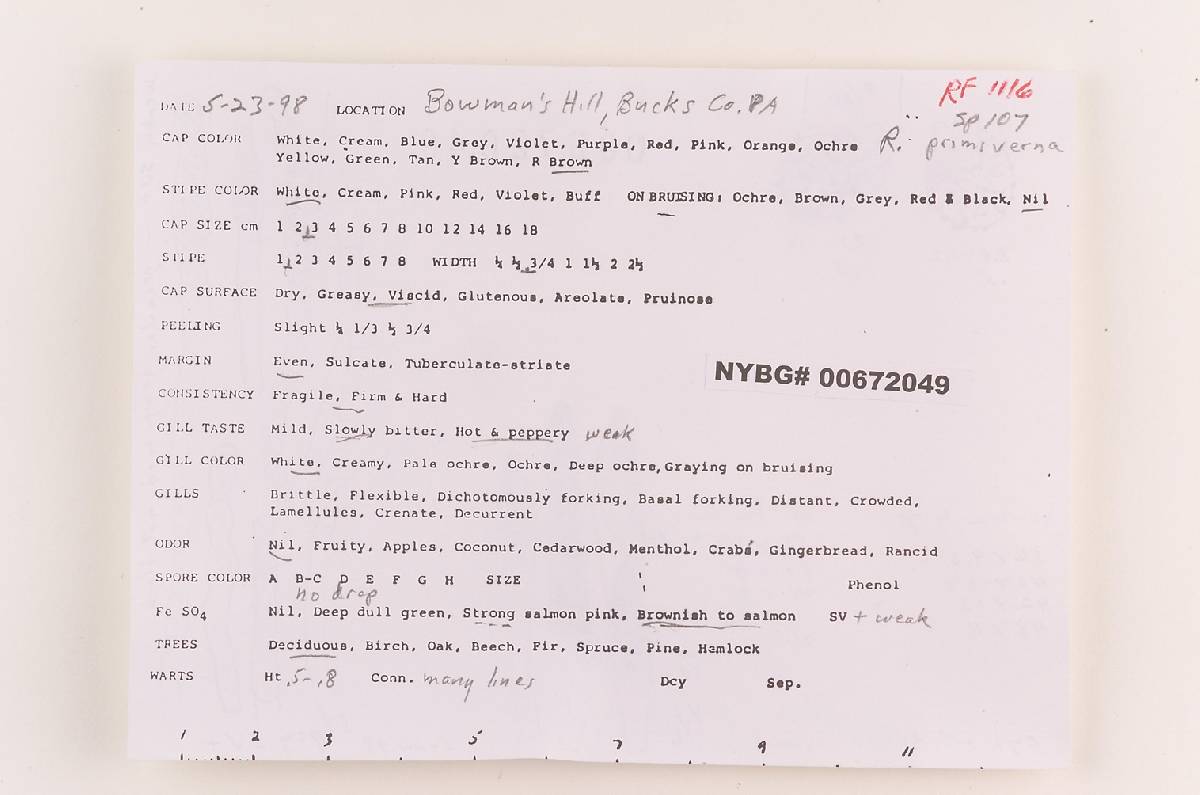 RF 1116
DATE 5-23-98 LOCATION Bowman's Hill, Bucks Co. PA
Sp 107
CAP COLOR White, Cream, Blue, Grey, Violet, Purple, Red, Pink, Orange, Ochre R. primiverna
Yellow, Green, Tan, Y Brown, R Brown
STIPE COLOR White, Cream, Pink, Red, Violet, Buff ON BRUISING: Ochre, Brown, Grey, Red & Black, Nil
CAP SIZE cm 1 2 3 4 5 6 7 8 10 12 14 16 18
STIPE 1 2 3 4 5 6 7 8 WIDTH ¼ ½ 3/4 1 1½ 2 2½
CAP SURFACE Dry, Greasy, Viscid, Glutenous, Areolate, Pruinose
PEELING Slight ¼ 1/3 ½ 3/4
MARGIN Even, Sulcate, Tuberculate-striate
NYBG# 00672049
CONSISTENCY Fragile, Firm & Hard
GILL TASTE Mild, Slowly bitter, Hot & peppery weak
GILL COLOR White, Creamy, Pale ochre, Ochre, Deep ochre, Graying on bruising
GILLS Brittle, Flexible, Dichotomously forking, Basal forking, Distant, Crowded,
Lamellules, Crenate, Decurrent
ODOR Nil, Fruity, Apples, Coconut, Cedarwood, Menthol, Crabs, Gingerbread, Rancid
SPORE COLOR A B-C D E F G H SIZE Phenol
no drop
Fe SO4 Nil, Deep dull green, Strong salmon pink, Brownish to salmon SV + weak
TREES Deciduous, Birch, Oak, Beech, Fir, Spruce, Pine, Hemlock
WARTS Ht .5-.8 Conn. many lines Dcy Sep.
1 2 3 5 7 9 11